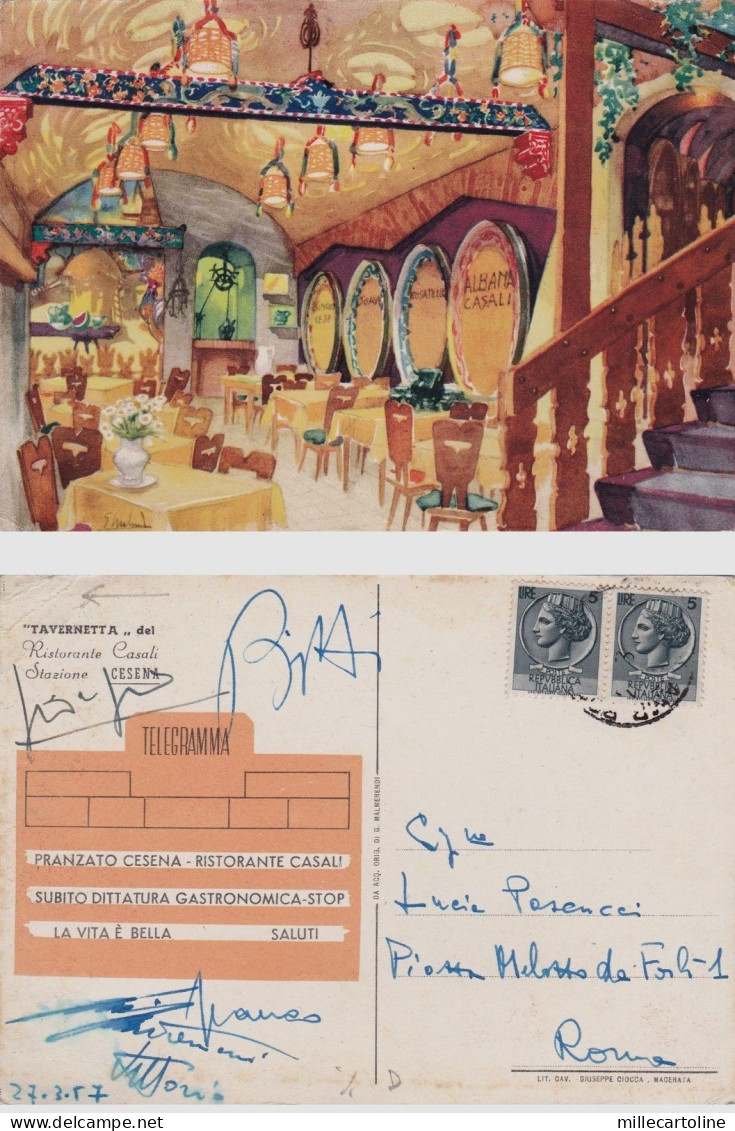 ALBANA
CASALI
"TAVERNETTA„ del
Ristorante Casali
Stazione CESENA
LIRE 5
POSTE
REPVBBLICA
ITALIANA
LIRE 5
POSTE
REPVBBLICA
ITALIANA
TELEGRAMMA
PRANZATO CESENA - RISTORANTE CASALI
SUBITO DITTATURA GASTRONOMICA-STOP
LA VITA È BELLA SALUTI
Franco
Vittorio
27.3.57
DA ACQ. ORIG. DI G. MALMERENDI
Lucia Pasencci
Piazza Melozzo da Forlì-1
Roma
LIT. CAV. GIUSEPPE CIOCCA . MACERATA
D
millecartoline